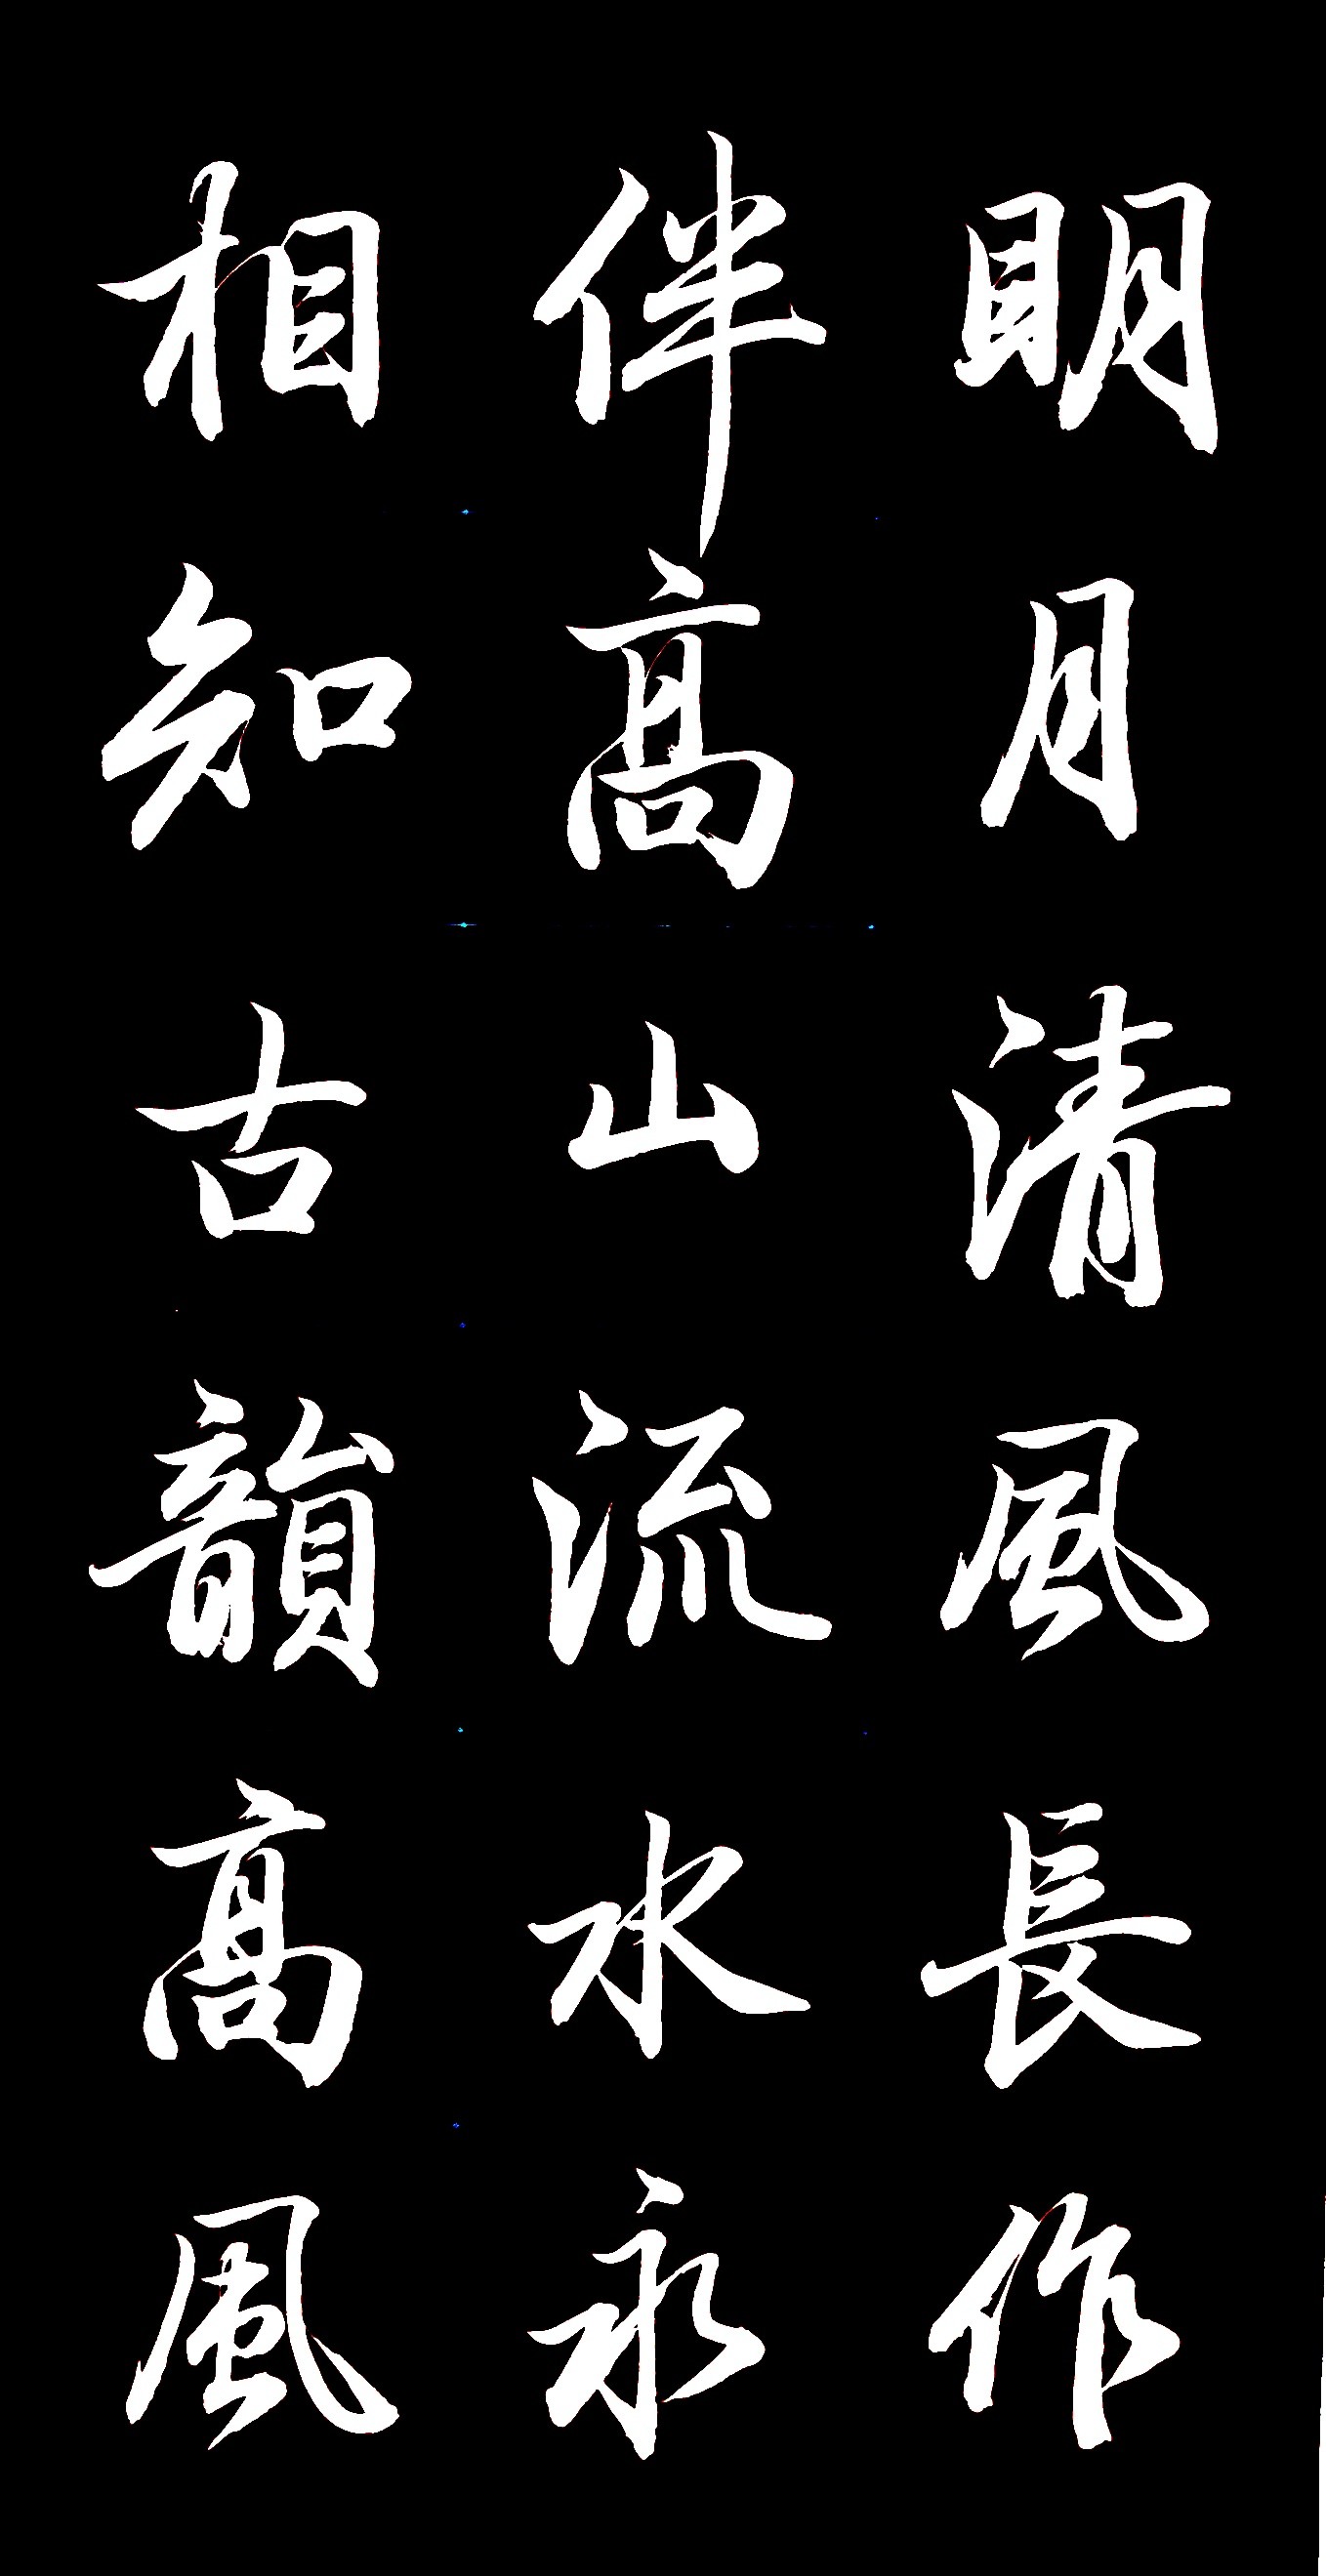 明月清風長作
伴高山流水永
相知古韻高風